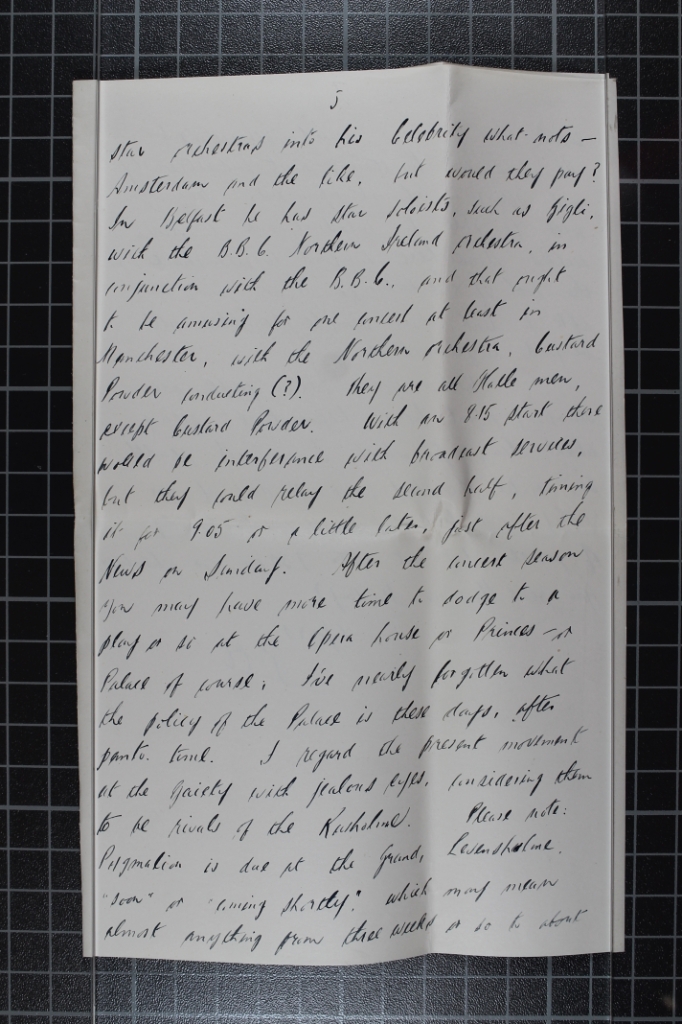 5
star orchestras into his Celebrity what-nots —
Amsterdam and the like, but would they pay?
In Belfast he has star soloists, such as Gigli,
with the B.B.C. Northern Ireland orchestra, in
conjunction with the B.B.C., and that ought
to be amusing for one concert at least in
Manchester, with the Northern orchestra, Custard
Powder conducting (?). They are all Halle men,
except Custard Powder. With an 8.15 start there
would be interference with broadcast services,
but they could relay the second half, timing
it for 9.05 or a little later, just after the
News on Sunday. After the concert season
you may have more time to dodge to a
play or so at the Opera house or Princes - or
Palace of course; I've nearly forgotten what
the policy of the Palace is these days, after
panto. time. I regard the present movement
at the Gaiety with jealous eyes, considering them
to be rivals of the Rusholme. Please note:
Pygmalion is due at the Grand, Levenshulme,
"soon" or "coming shortly", which may mean
almost anything from three weeks or so to about